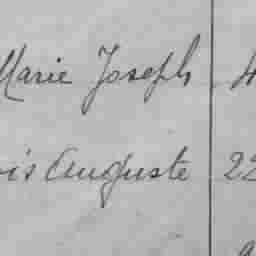 Marie Joseph 4
is Auguste 22